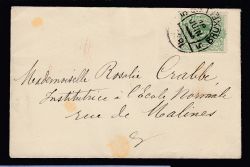 Mademoiselle Rosalie Crabbe,
Institutrice à l'Ecole Normale
rue de Malines